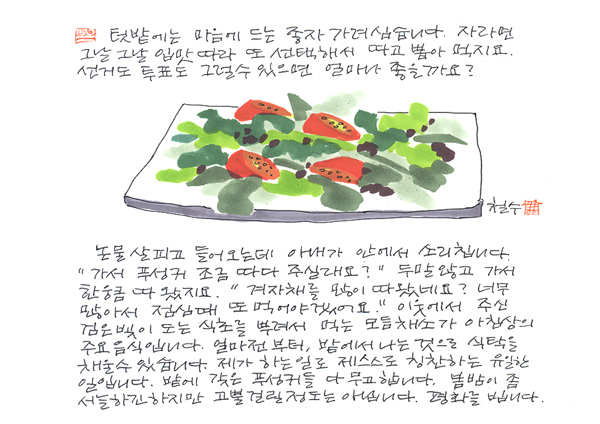 텃밭에는 마음에 드는 종자 가려 심습니다. 자라면
그날 그날 입맛 따라 또 선택해서 따고 뽑아 먹지요.
선거도 투표도 그럴수 있으면 얼마나 좋을까요?
철수
논물 살피고 들어오는데 아내가 안에서 소리칩니다.
"가서 푸성귀 조금 따다 주실래요?" 두말 않고 가서
한웅큼 따 왔지요. "겨자채를 많이 따왔네요? 너무
많아서 점심때 또 먹어야겠어요." 이웃에서 주신
검은빛이 도는 식초를 뿌려서 먹는 모듬채소가 아침상의
주요음식입니다. 얼마전부터, 밭에서 나는 것으로 식탁을
채울수 있습니다. 제가 하는일로 제 스스로 칭찬하는 유일한
일입니다. 밭에 갖은 푸성귀들 다 무고합니다. 봄밤이 좀
서늘하긴하지만 고뿔걸릴정도는 아닙니다. 평화를 빕니다.